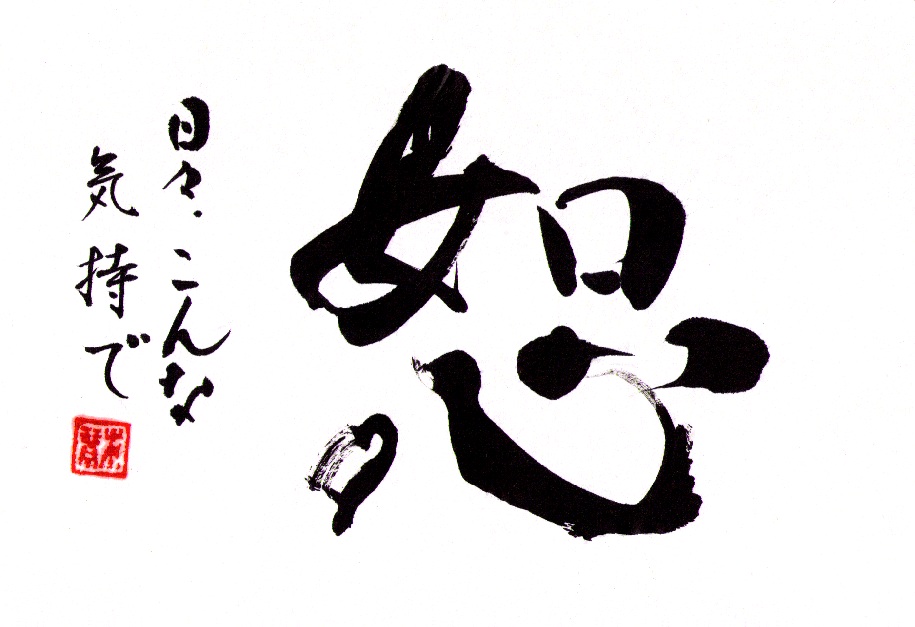 恕
日々、こんな
気持で